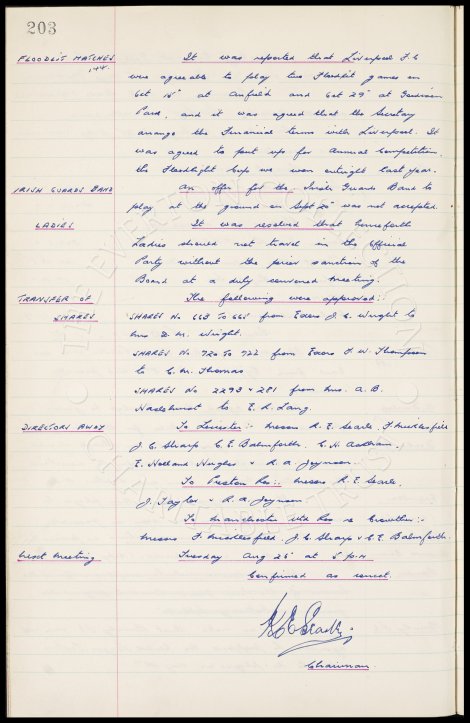 203
FLOODLIT MATCHES It was reported that Liverpool F.C
were agreeable to play two Floodlit games on
Oct 15th at Anfield and Oct 29th at Goodison
Park, and it was agreed that the Secretary
arrange the Financial terms with Liverpool. It
was agreed to put up for Annual Competition,
the Floodlight Cup we won outright last year.
IRISH GUARDS BAND An offer for the Irish Guards Band to
play at the ground on Sept 20th was not accepted.
LADIES It was resolved that henceforth
Ladies should not travel in the Official
Party without the prior sanction of the
Board at a duly convened meeting.
TRANSFER OF The following were approved:-
SHARES SHARES No 663 To 665 from Exors J. C. Wright to
Mrs D. M. Wright.
SHARES No 720 To 722 from Exors F. W. Thompson
to C. M. Thomas
SHARES No 2293 & 281 from Mrs. A. B.
to E. R. Lang.
DIRECTORS AWAY To Leicester:- Messrs R. E. Searle, F Micklesfield
J. C. Sharp, C. E. Balmforth, C. H. Askham,
E. Holland Hughes & R. A. Joynson.
To Preston Res:- Messrs R. E. Searle,
J. Taylor & R. A. Joynson
To Manchester Utd Res :-
Messrs F. Micklesfield, J. C. Sharp & C. E. Balmforth.
Next Meeting Tuesday Aug 26th at 5 p.m
Confirmed as correct.
Chairman